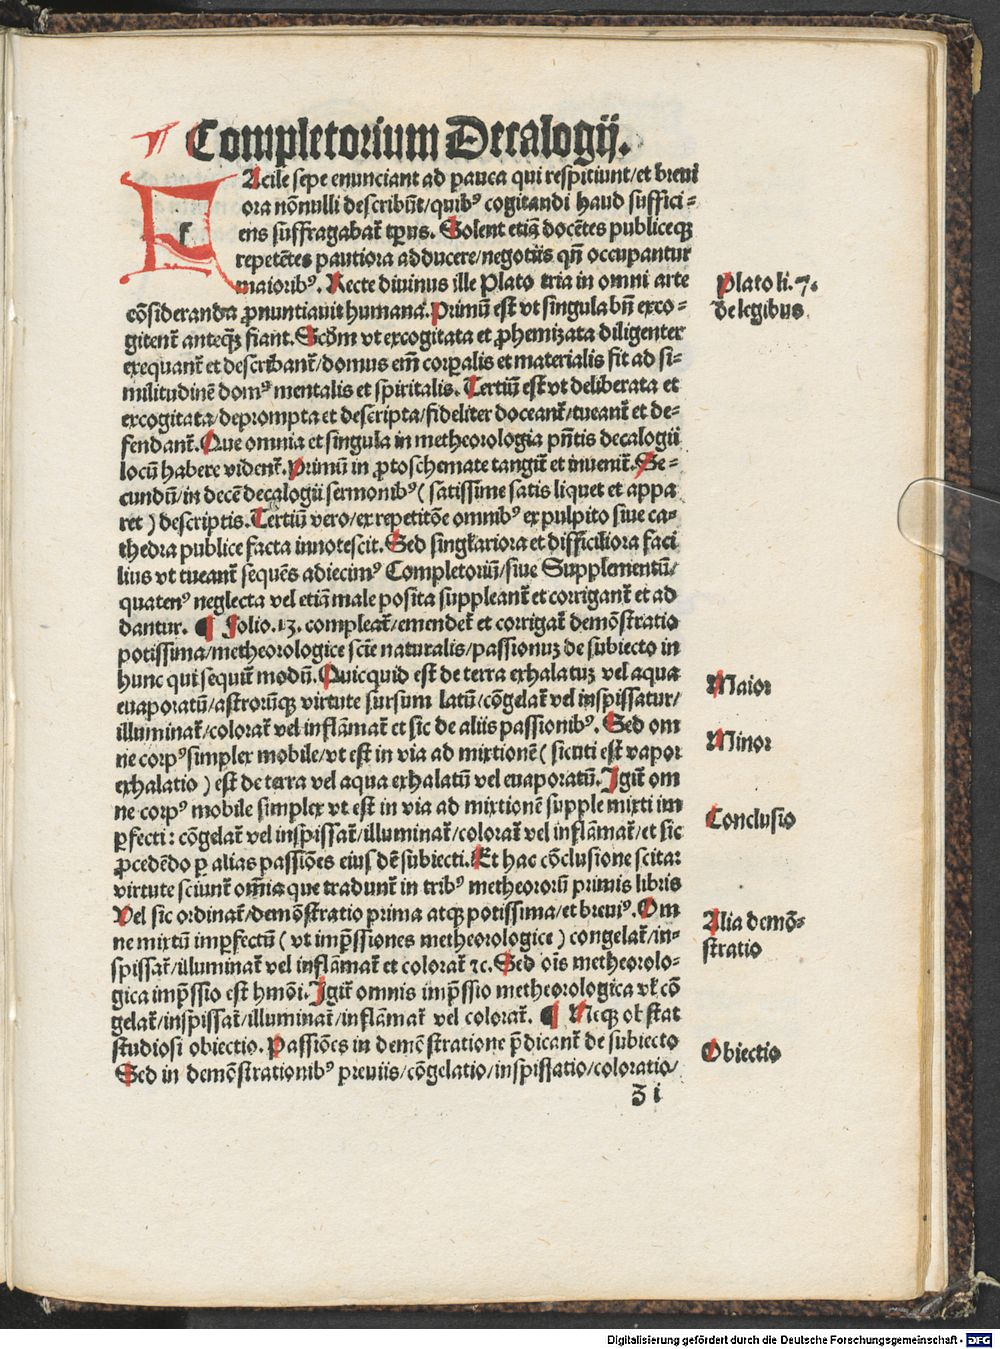 Completorium Decalogij.
FAcile sepe enunciant ad pauca qui respitiunt/et breui
ora nōnulli describūt/quibꝰ cogitandi haud suffici⸗
ens suffragabat̄ tp̄us. Solent etiā docētes publiceqꝫ
repetētes pautiora adducere/negotiis qn̄ occupantur
maioribꝰ. Recte diuinus ille Plato tria in omni arte
cōsideranda ꝓnuntiauit humana. Primū est vt singula bn̄ exco⸗
gitent̄ anteqꝫ fiant. Scd̄m vt excogitata et ꝓhemizata diligenter
exequant̄ et describant̄/domus em̄ corꝑalis et materialis fit ad si⸗
militudinē domꝰ mentalis et spiritalis. Tertiū est vt deliberata et
excogitata/deprompta et descripta/fideliter doceant̄/tueant̄ et de⸗
fendant̄. Que omnia et singula in metheorologia pn̄tis decalogii
locū habere vident̄. Primū in ꝓtoschemate tangit̄ et inuenit̄. Se⸗
cundū/in decē decalogii sermonibꝰ ( satissime satis liquet et appa
ret ) descriptis. Tertiū vero/ex repetitōe omnibꝰ ex pulpito siue ca⸗
thedra publice facta innotescit. Sed singlariora et difficiliora faci
lius vt tueant̄ sequēs adiecimꝰ Completoriū/siue Supplementū/
quatenꝰ neglecta vel etiā male posita suppleant̄ et corrigant̄ et ad
dantur. ¶ Folio .13. compleat̄/emendet̄ et corrigat̄ demōstratio
potissima/metheorologice scīe naturalis/passionuꝫ de subiecto in
hunc qui sequit̄ modū. Quicquid est de terra exhalatuꝫ vel aqua
euaporatū/astrorūqꝫ virtute sursum latū/cōgelat̄ vel inspissatur/
illuminat̄/colorat̄ vel inflāmat̄ et sic de aliis passionibꝰ. Sed om
ne corpꝰ simplex mobile/vt est in via ad mixtionē ( sicuti est vapor
exhalatio ) est de terra vel aqua exhalatū vel euaporatū. Igit̄ om
ne corpꝰ mobile simplex vt est in via ad mixtionē supple mixti im
ꝑfecti: cōgelat̄ vel inspissat̄/illuminat̄/colorat̄ vel inflāmat̄/et sic
ꝓcedēdo ꝑ alias passiōes eius dē subiecti. Et hac cōclusione scitar
virtute sciunt̄ om̄ia que tradunt̄ in tribꝰ metheororū primis libris
Vel sic ordinat̄/demōstratio prima atqꝫ potissima/et breuiꝰ. Om
ne mixtū imꝑfectū ( vt imp̄ssiones metheorologice ) congelat̄/in⸗
spissat̄/illuminat̄ vel inflāmat̄ et colorat̄ ⁊c. Sed oīs metheorolo⸗
gica imp̄ssio est hmōi. Igit̄ omnis imp̄ssio metheorologica vl̄ cō
gelat̄/inspissat̄/illuminat̄/inflāmat̄ vel colorat̄. ¶ Necqꝫ obstat
studiosi obiectio. Passiōes in demōstratione p̄dicant̄ de subiecto
Sed in demōstrationibꝰ preuiis/cōgelatio/inspissatio/coloratio/
3 i
Plato li. 7.
de legibus
Maior
Minor
Conclusio
Alia demō⸗
stratio
Obiectio
Digitalisierung gefördert durch die Deutsche Forschungsgemeinschaft - DFG